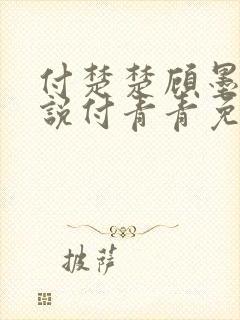 付楚楚顾墨
说付青青免
披萨